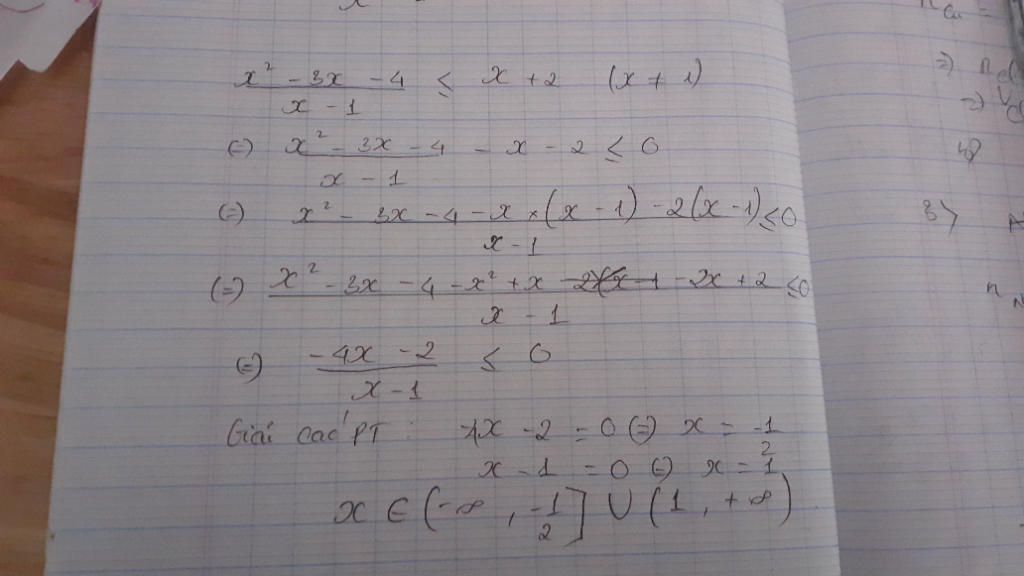 x² - 3x - 4 / x - 1 ≤ x + 2 (x ≠ 1)
(=) x² - 3x - 4 / x - 1 - x - 2 ≤ 0
(=) x² - 3x - 4 - x × (x - 1) - 2(x - 1) / x - 1 ≤ 0
(=) x² - 3x - 4 - x² + x - 2x + 2 / x - 1 ≤ 0
(=) -4x - 2 / x - 1 ≤ 0
Giải các PT : -4x - 2 = 0 (=) x = -1/2
x - 1 = 0 (=) x = 1
x ∈ (-∞ , -1/2] ∪ (1, +∞)
n Cu =
=)
=)
4)
8)
n